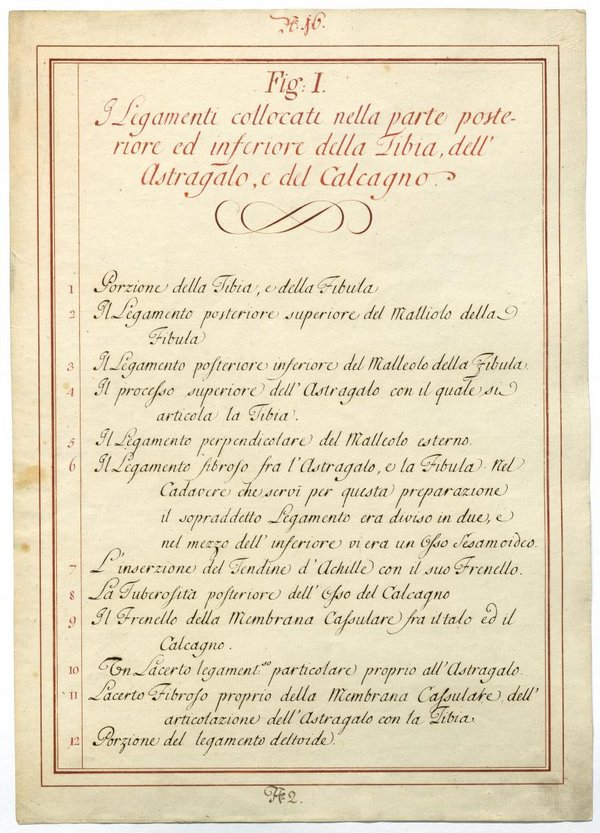 16.
Fig: I.
I Legamenti collocati nella parte poste-
riore ed inferiore della Tibia, dell'
Astragalo, e del Calcagno.
1 Porzione della Tibia, e della Fibula
2 Il Legamento posteriore superiore del Malliolo della
Fibula
3 Il Legamento posteriore inferiore del Malleolo della Fibula.
4 Il processo superiore dell'Astragalo con il quale si
articola la Tibia.
5 Il Legamento perpendicolare del Malleolo esterno.
6 Il Legamento fibroso fra l'Astragalo, e la Fibula. Nel
Cadavere che servì per questa preparazione
il sopraddetto Legamento era diviso in due, e
nel mezzo dell'inferiore vi era un Osso Sesamoideo.
7 L'inserzione del Tendine d'Achille con il suo Frenello.
8 La Tuberosità posteriore dell'Osso del Calcagno
9 Il Frenello della Membrana Cassulare fra il talo ed il
Calcagno.
10 Un Lacerto legament:so particolare proprio all'Astragalo.
11 Lacerto Fibroso proprio della Membrana Cassulare dell'
articolazione dell'Astragalo con la Tibia
12 Porzione del legamento deltoide.
2.